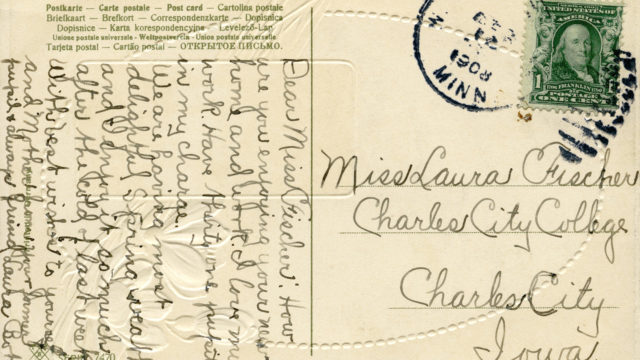 Postkarte - Carte postale - Post card - Cartolina postale
Briefkaart - Brefkort - Correspondenzkarte - Dopisnica
Dopisnice - Karta korespondencyjna - Levelező-Lap
Unione postale universale - Weltpostverein - Union postale universelle
Tarjeta postal - Cartão postal - ОТКРЫТОЕ ПИСЬМО.
Dear Miss Fischer: How
are you enjoying your new
home and work. I love my
work. Have thirty-one pupils
in my charge.
We are having most
delightful spring weath
and I enjoy it so much
after the cold of last week
With best wishes to yourself
and Mother from your former
pupil & always friend Laura
MINN
1908
OF AMERICA
FRANKLIN
POSTAGE
ONE CENT
Miss Laura Fischer
Charles City College
Charles City
Iowa